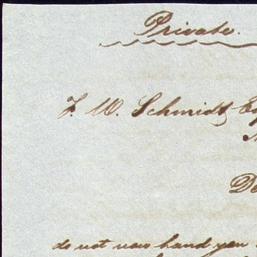 Private.
F. W. Schmidt
De
do not now hand you